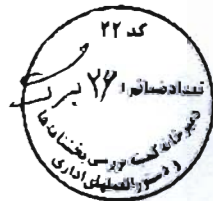 کد ۲۲
تعداد ضمائم: ۲۳ برگ
دبیرخانه کمیته بررسی بخشنامه ها
و دستورالعملهای اداری